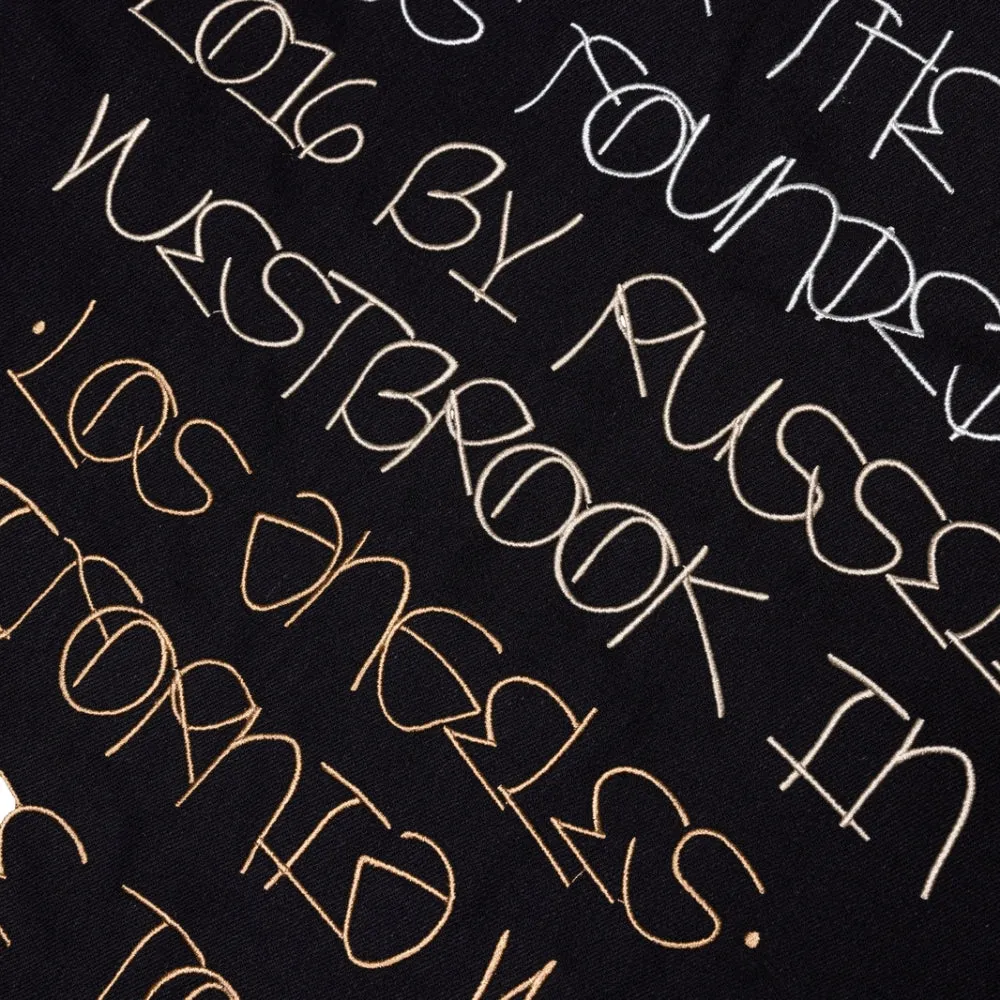 THE
FOUNDED
2016 BY RUSSELL
WESTBROOK IN
.LOS ANGELES.
IFORNIA